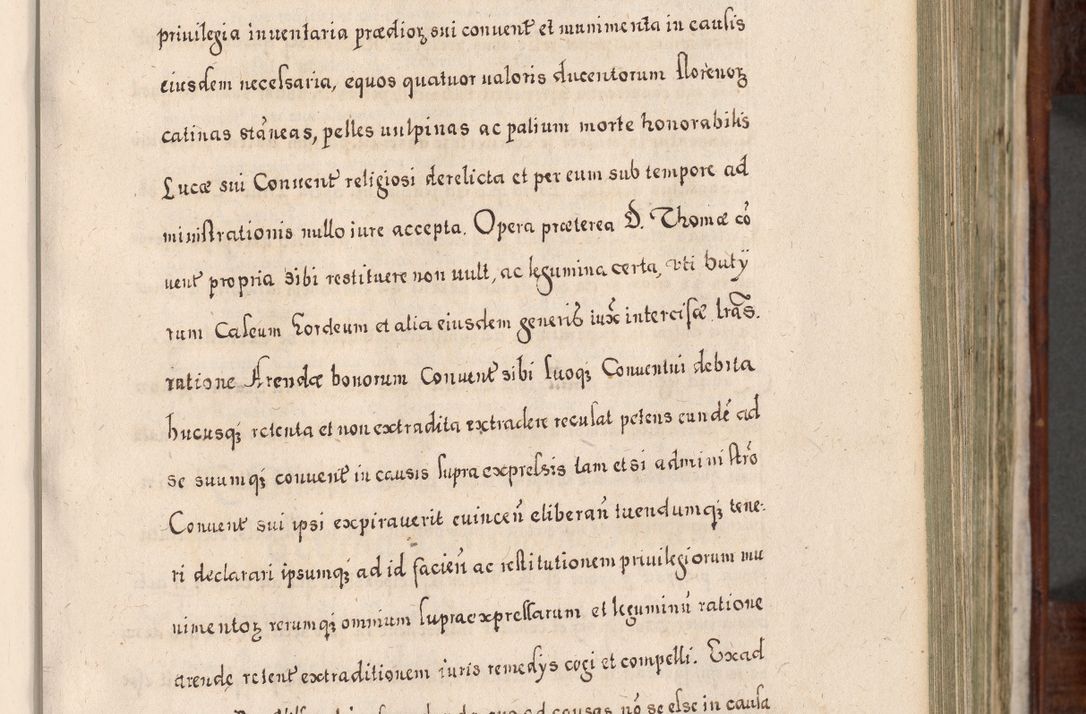 priuilegia inuentaria prædioꝝ sui conuent̃ et munimenta in causis
eiusdem necessaria, equos quatuor ualoris ducentorum florenoꝝ
catinas stañeas, pelles uulpinas ac palium morte honorabilis
Lucæ sui Conuent̃ religiosi derelicta et per eum sub tempore ad
ministrationis nullo iure accepta. Opera præterea D. Thomæ cō
uent̃ propria sibi restituere non uult, ac legumina certa, uti buty
rum Caseum hordeum et alia eiusdem generis iux̃ intercisæ lr̃as.
ratione Arendæ bonorum Conuent̃ sibi suoqꝫ Conuentui debita
hucusqꝫ retenta et non extradita extradere recusat petens eundē ad
se suumqꝫ conuent̃ in causis supra expressis tam etsi administrõ
Conuent̃ sui ipsi expirauerit euinceñ eliberañ tuendumqꝫ tene-
ri declarari ipsumqꝫ ad id facieñ ac restitutionem priuilegiorum mu
nimentoꝝ rerumqꝫ omnium supraexpressarum et leguminū ratione
arendę retent̃ extraditionem iuris remedys cogi et compelli. Ex ad
ad causas nō se esse in causa